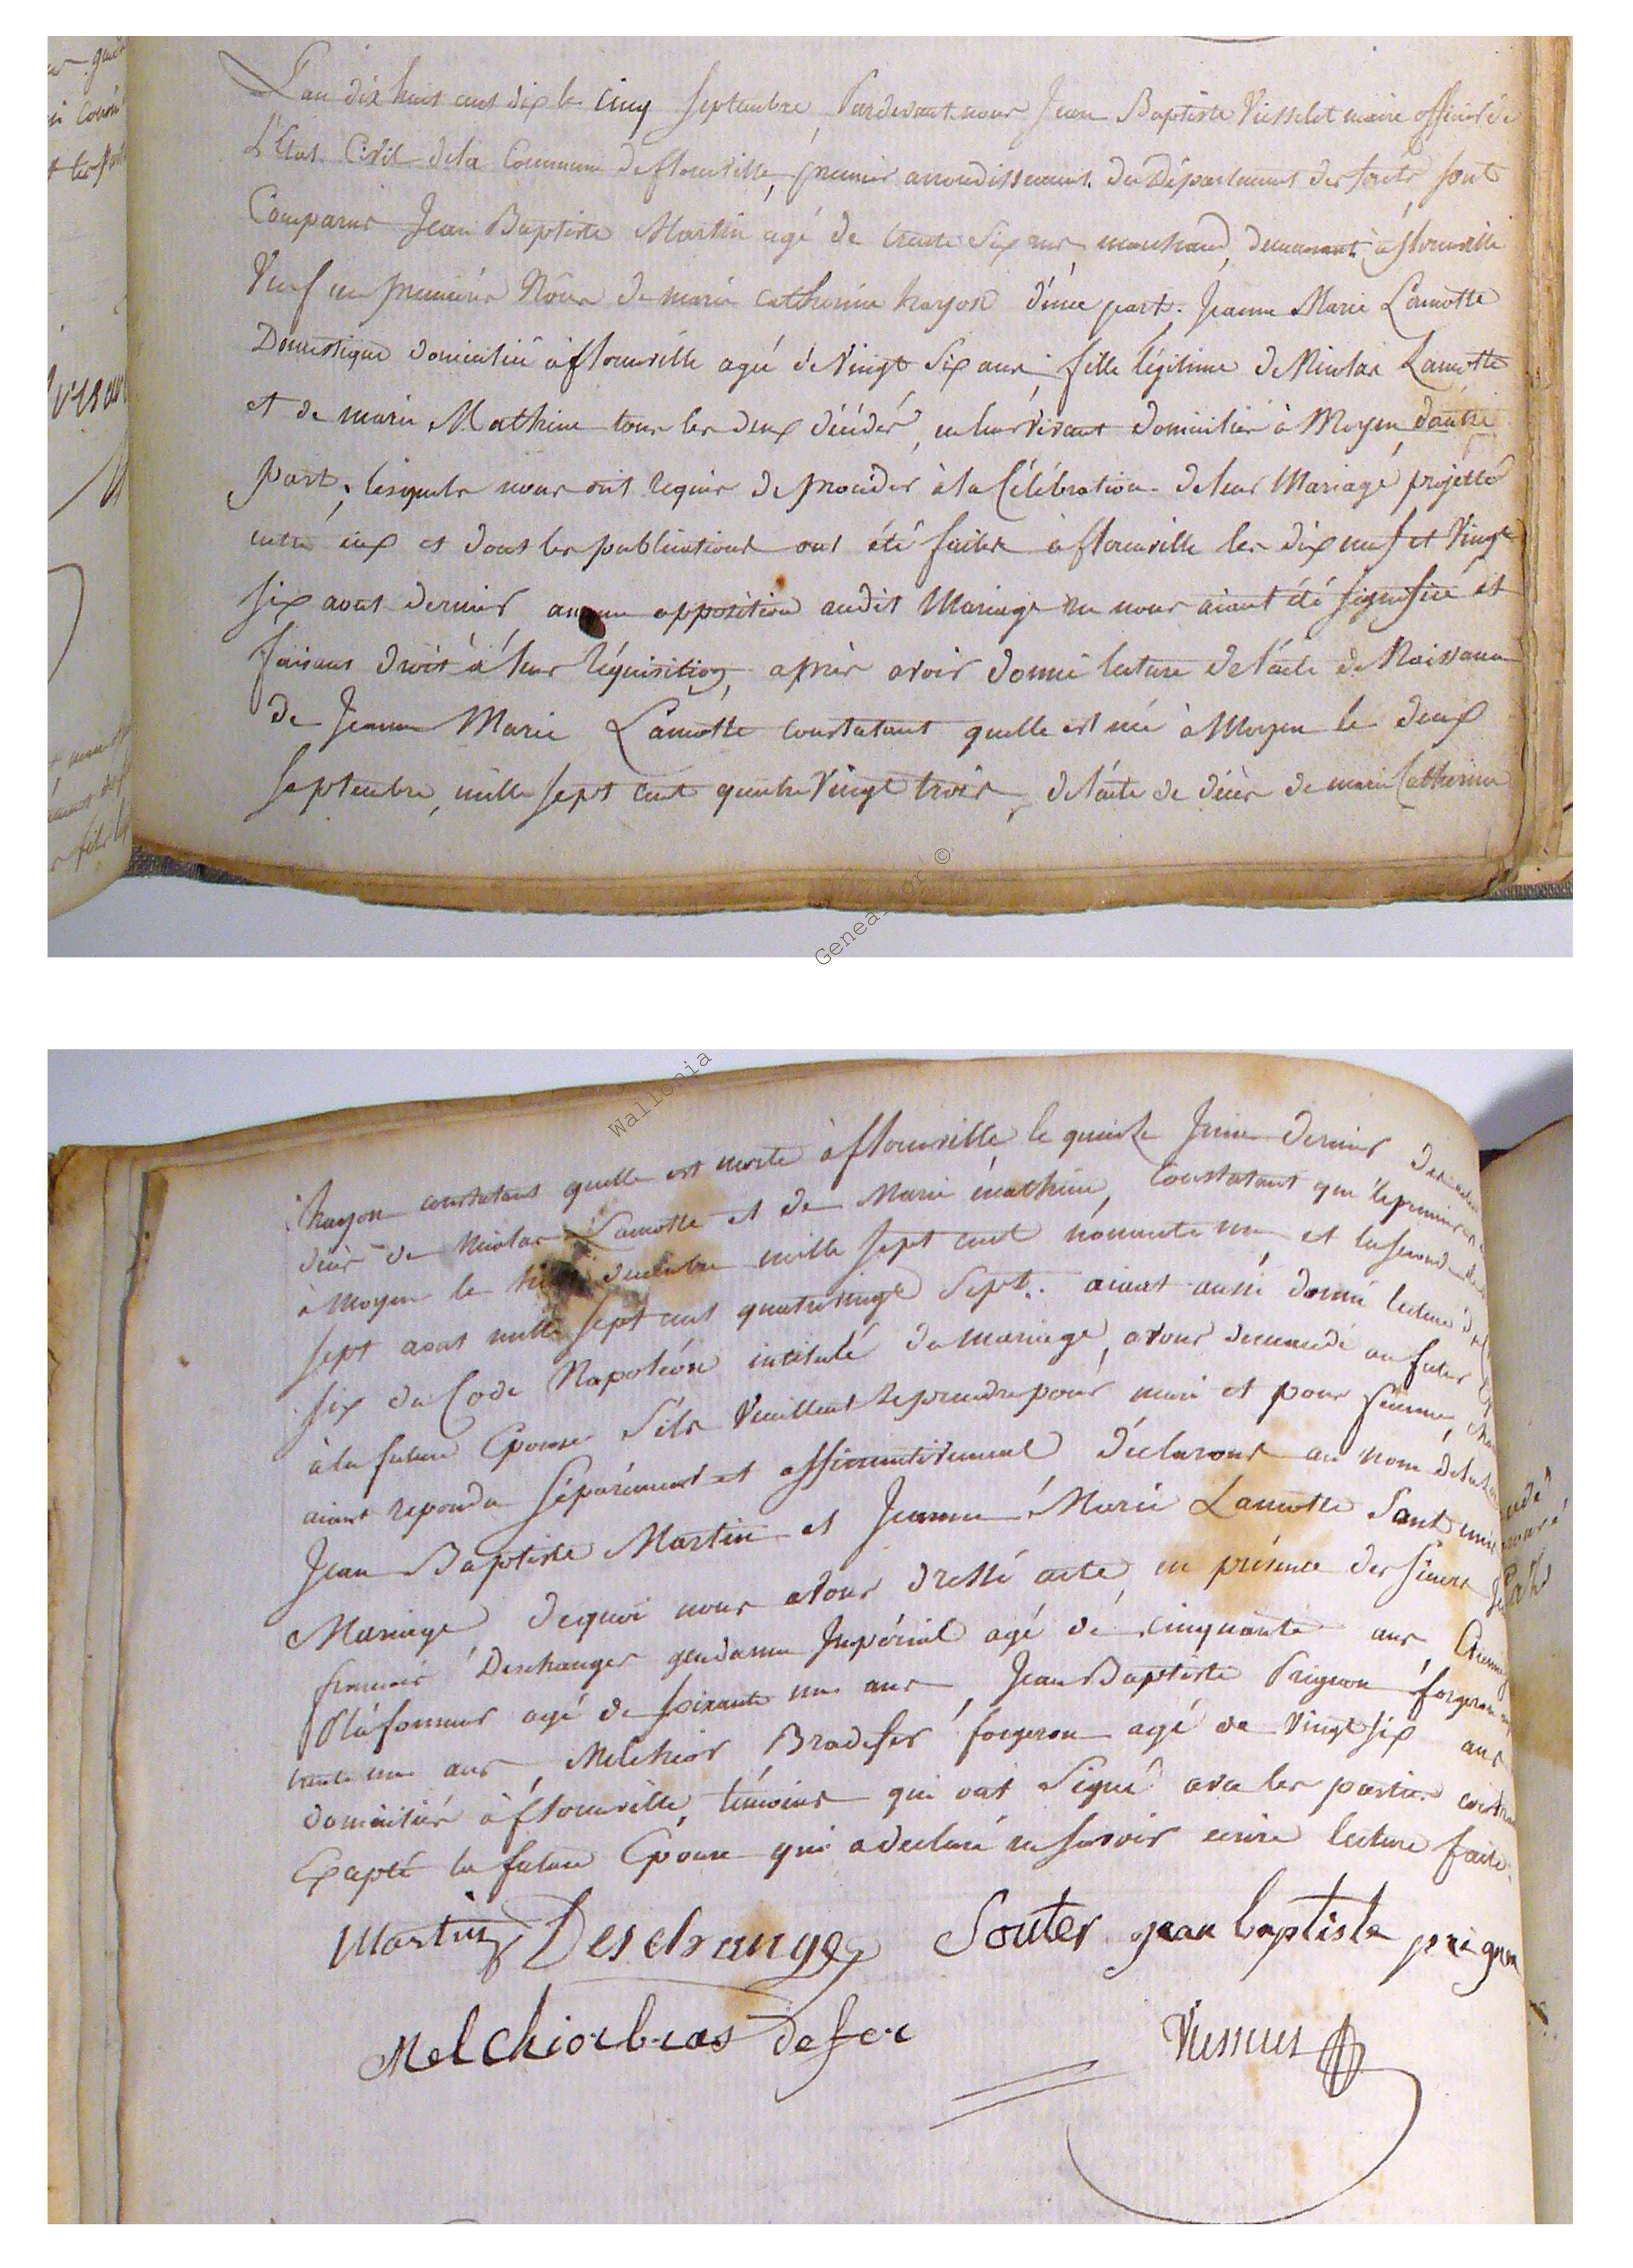 L'an dix huit cent dix le cinq Septembre, Pardevant nous Jean Baptiste maire officier de
L'Etat Civil de la Commune de florenville, premier arrondissement du Département des forêts sont
Comparus Jean Baptiste Martin agé de trente Six ans marchand, demeurant à florenville
Veuf en premières Nôces de marie catherine hayon d'une part. Jeanne Marie Lamotte
Domestique domiciliée à florenville agée de Vingt Six ans, fille légitime de Nicolas Lamotte
et de marie Mathieu tous les deux décédés, en leur vivant domiciliés à Moyen, d'autre
part, lesquels nous ont requis de procéder à la Célébration de leur Mariage projetté
entre eux et dont les publications ont été faites à florenville les dix neuf et Vingt
six aout dernier, aucune opposition audit Mariage ne nous aiant été signifiée et
faisant droit à leur réquisition, après avoir donné lecture de l'acte de Naissance
de Jeanne Marie Lamotte constatant quelle est née à Moyen le deux
septembre, mille sept cent quatre Vingt trois, de l'acte de décès de marie Catherine
Genealogr ©
Wallonia
hayon constatant quelle est morte à florenville le quinze Juin dernier
décès de Nicolas Lamotte et de Marie mathieu, Constatant que le premier est
à Moyen le decembre mille sept cent nonante un et la seconde
sept aout mille sept cent quatre vingt Sept. aiant aussi donné lecture
six du Code Napoléon intitulé du mariage, avons demandé au futur
à la future Epouse S'ils Veuillent se prendre pour mari et pour femme,
aiant repondu séparément et affirmativement déclarons au nom de la
Jean Baptiste Martin et Jeanne Marie Lamotte Sont unis
Mariage de quoi nous avons dressé acte, en présence des sieurs
françois Deschanges gendarme Impérial agé de cinquante ans,
Plafonneur agé de soixante un ans, Jean Baptiste Prignon forgeron
trente un ans, Melchior Bradefer forgeron agé de Vingt six ans
domiciliés à florenville, témoins qui ont Signé avec les parties
Exapté la future Epouse qui a déclaré ne savoir ecrire lecture faite.
Martin Deschanges Souter jean baptiste prignon
Melchior bras defer